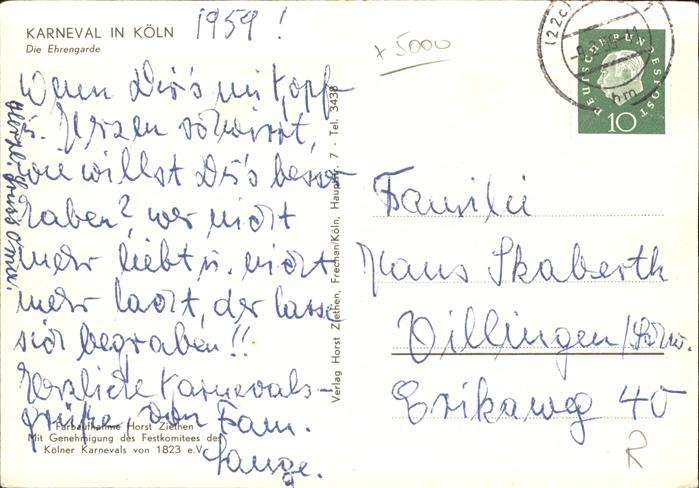 KARNEVAL IN KÖLN 1959!
Die Ehrengarde
+ 5000
Wenn Dir's mit Kopf
u. Herzen schwirrt,
wie willst Dir's besser
haben? wer nicht
mehr liebt u. nicht
mehr lacht, der lasse
sich begraben!!
Herzliche Karnevals-
grüße, von Fam.
Lange.
Herzl. Gruss Oma.
Farbaufnahme Horst Ziethen
Mit Genehmigung des Festkomitees des
Kölner Karnevals von 1823 e.V.
Verlag Horst Ziethen, Frechen/Köln, Hauptstr. 7 · Tel. 3438
(22c)
DEUTSCHE BUNDESPOST
10
Familie
Hans Skaberth
Villingen/Schw.
Erikaweg 40
R